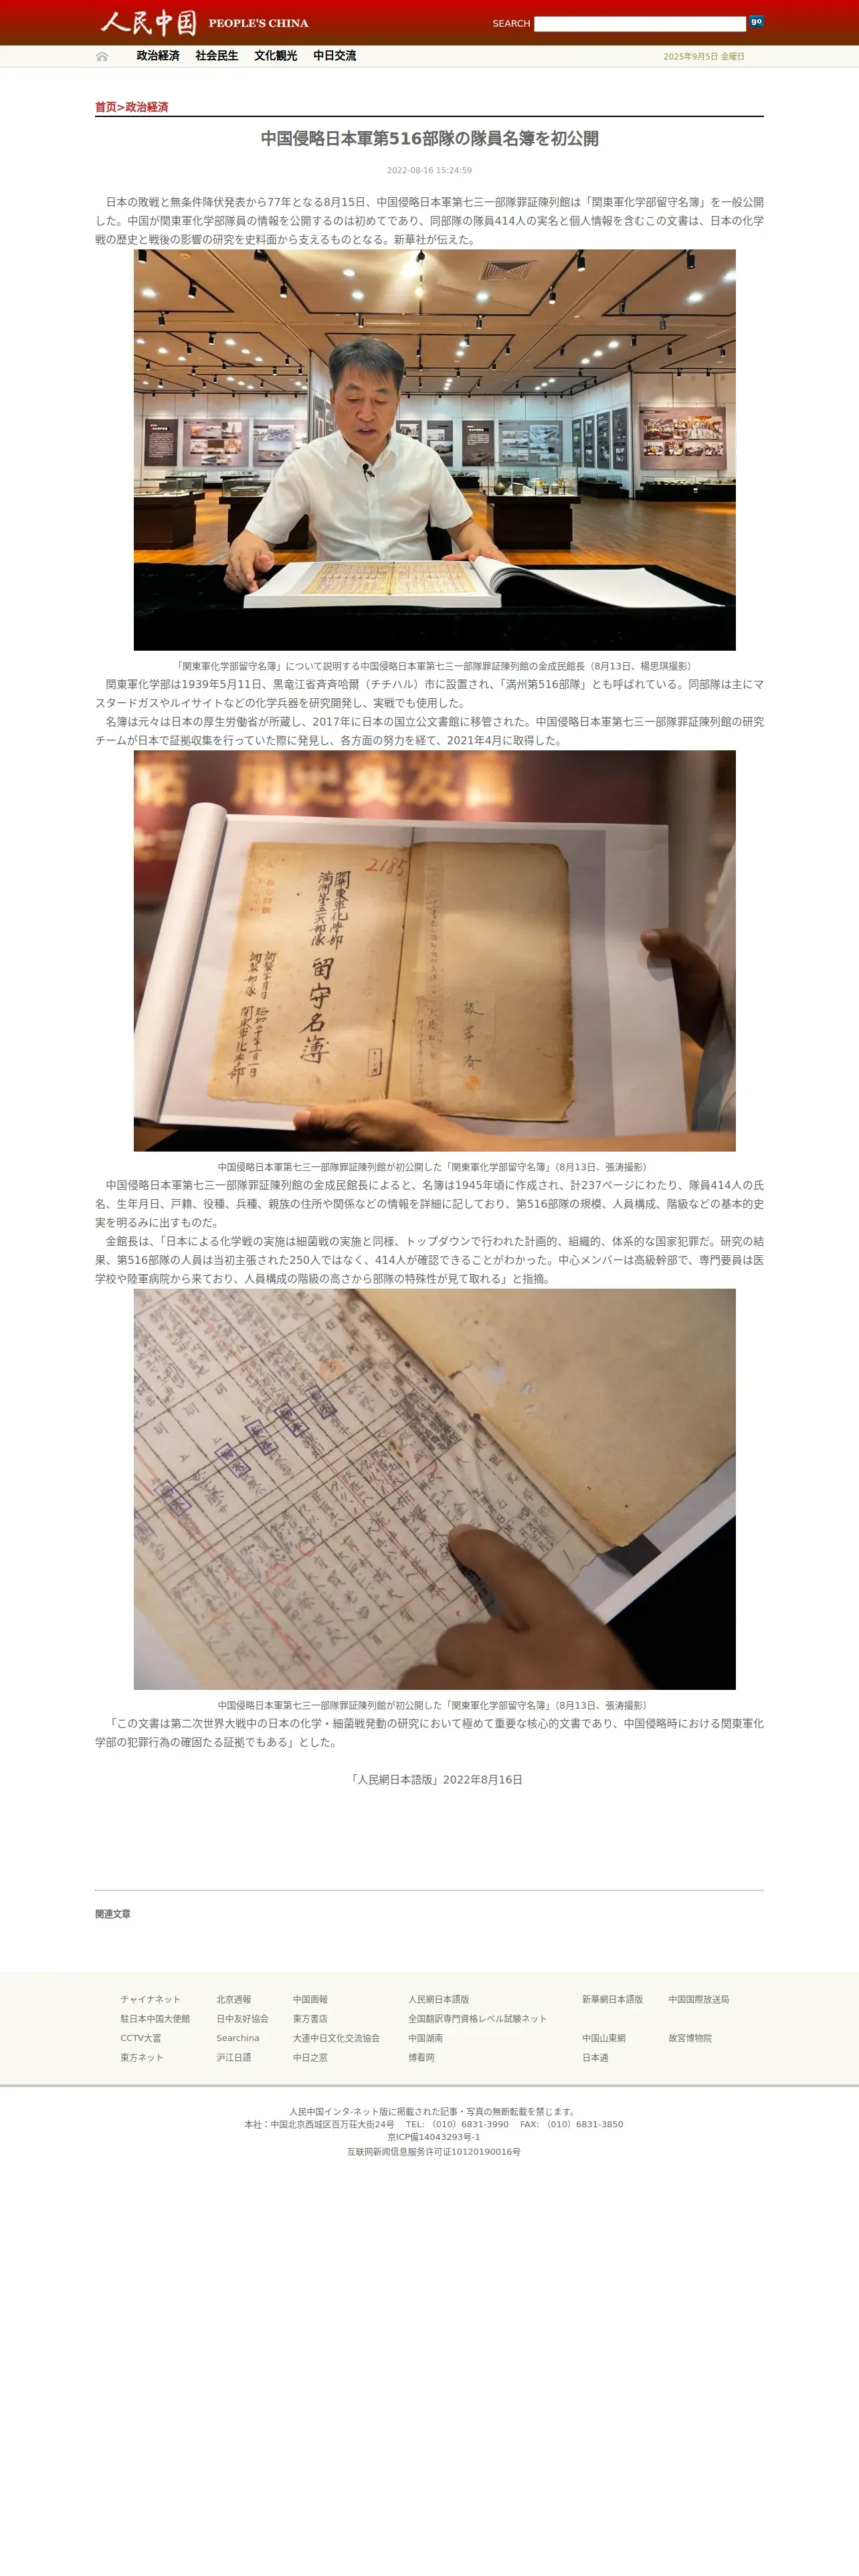 人民中国 PEOPLE'S CHINA
SEARCH go
政治経済 社会民生 文化観光 中日交流 2025年9月5日 金曜日
首页>政治経済
中国侵略日本軍第516部隊の隊員名簿を初公開
2022-08-16 15:24:59
日本の敗戦と無条件降伏発表から77年となる8月15日、中国侵略日本軍第七三一部隊罪証陳列館は「関東軍化学部留守名簿」を一般公開
した。中国が関東軍化学部隊員の情報を公開するのは初めてであり、同部隊の隊員414人の実名と個人情報を含むこの文書は、日本の化学
戦の歴史と戦後の影響の研究を史料面から支えるものとなる。新華社が伝えた。
「関東軍化学部留守名簿」について説明する中国侵略日本軍第七三一部隊罪証陳列館の金成民館長（8月13日、楊思琪撮影）
関東軍化学部は1939年5月11日、黒竜江省斉斉哈爾（チチハル）市に設置され、「満州第516部隊」とも呼ばれている。同部隊は主にマ
スタードガスやルイサイトなどの化学兵器を研究開発し、実戦でも使用した。
名簿は元々は日本の厚生労働省が所蔵し、2017年に日本の国立公文書館に移管された。中国侵略日本軍第七三一部隊罪証陳列館の研究
チームが日本で証拠収集を行っていた際に発見し、各方面の努力を経て、2021年4月に取得した。
2185
關東軍化學部
留守名簿
中国侵略日本軍第七三一部隊罪証陳列館が初公開した「関東軍化学部留守名簿」（8月13日、張涛撮影）
中国侵略日本軍第七三一部隊罪証陳列館の金成民館長によると、名簿は1945年頃に作成され、計237ページにわたり、隊員414人の氏
名、生年月日、戸籍、役種、兵種、親族の住所や関係などの情報を詳細に記しており、第516部隊の規模、人員構成、階級などの基本的史
実を明るみに出すものだ。
金館長は、「日本による化学戦の実施は細菌戦の実施と同様、トップダウンで行われた計画的、組織的、体系的な国家犯罪だ。研究の結
果、第516部隊の人員は当初主張された250人ではなく、414人が確認できることがわかった。中心メンバーは高級幹部で、専門要員は医
学校や陸軍病院から来ており、人員構成の階級の高さから部隊の特殊性が見て取れる」と指摘。
中国侵略日本軍第七三一部隊罪証陳列館が初公開した「関東軍化学部留守名簿」（8月13日、張涛撮影）
「この文書は第二次世界大戦中の日本の化学・細菌戦発動の研究において極めて重要な核心的文書であり、中国侵略時における関東軍化
学部の犯罪行為の確固たる証拠でもある」とした。
「人民網日本語版」2022年8月16日
関連文章
チャイナネット 北京週報 中国画報 人民網日本語版 新華網日本語版 中国国際放送局
駐日本中国大使館 日中友好協会 東方書店 全国翻訳専門資格レベル試験ネット
CCTV大富 Searchina 大連中日文化交流協会 中国湖南 中国山東網 故宮博物院
東方ネット 沪江日語 中日之窓 博看网 日本通
人民中国インタ-ネット版に掲載された記事・写真の無断転載を禁じます。
本社：中国北京西城区百万荘大街24号 TEL: （010）6831-3990 FAX: （010）6831-3850
京ICP備14043293号-1
互联网新闻信息服务许可证10120190016号